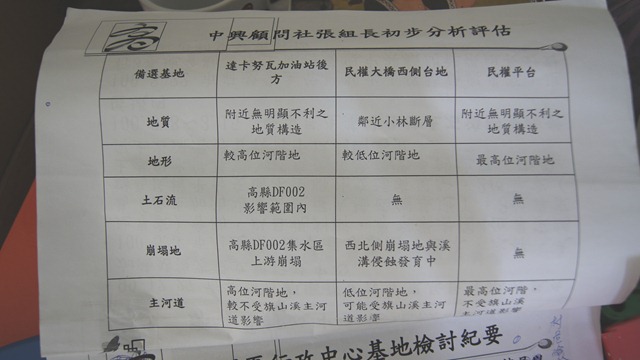 高
中興顧問社張組長初步分析評估
備選基地
達卡努瓦加油站後
方
民權大橋西側台地
民權平台
地質
附近無明顯不利之
地質構造
鄰近小林斷層
附近無明顯不利之
地質構造
地形
較高位河階地
較低位河階地
最高位河階地
土石流
高縣DF002
影響範圍內
無
無
崩塌地
高縣DF002集水區
上游崩塌
西北側崩塌地與溪
溝侵蝕發育中
無
主河道
高位河階地，
較不受旗山溪主河
道影響
低位河階地，
可能受旗山溪主河
道影響
最高位河階地，
不受旗山溪
主河道影響
行政中心基地檢討紀要